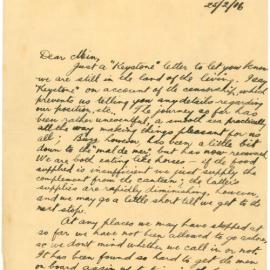 25/2/16
Dear Main,
Just a "Keystone" letter to let you know
we are still in the land of the living. I say
"Keystone" on account of the censorship, which
prevents us telling you any details regarding
our position, etc. The journey so far has
been rather uneventful, a smooth sea practically
all the way making things pleasant for no
all: has been a little bit
down to the "mal de mer", but has now recovered
We are both eating like horses — if the food
supplied is insufficient we just supply the
complement from the canteen; the latter's
supplies are rapidly diminishing, however,
and we may go a little short till we get to the
next stop.
At any places we may have stopped at
so far we have not been allowed to go ashore,
so we don't mind whether we call in or not.
It has been found so hard to get the men
on board again